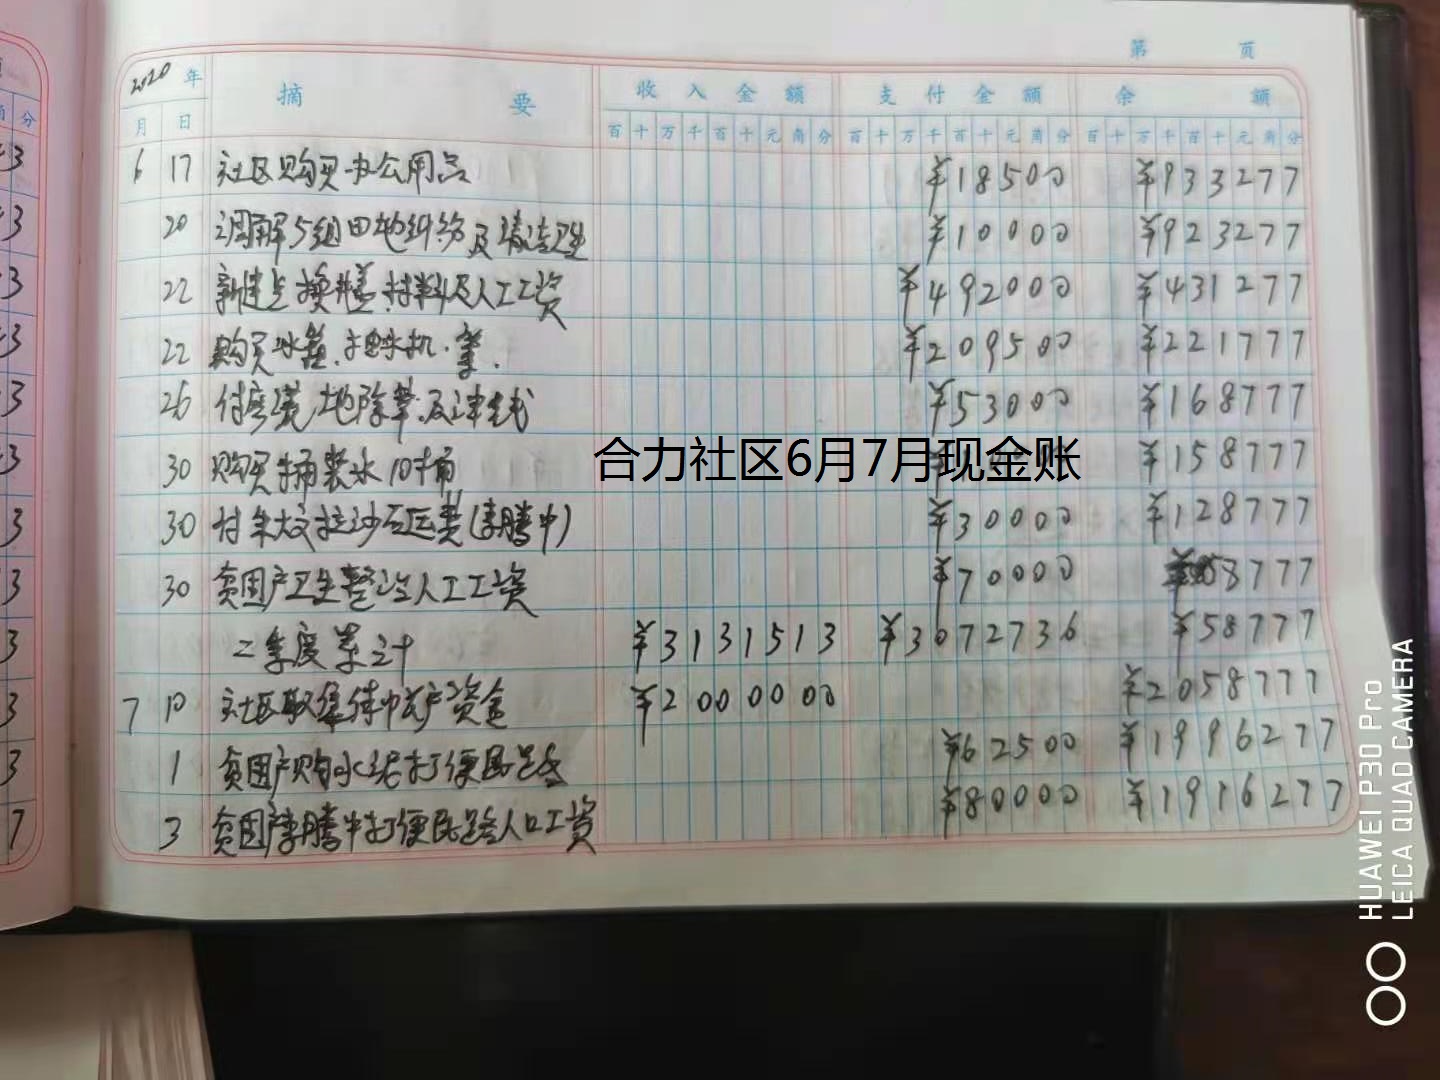 第 页
2020 年 摘 要 收 入 金 额 支 付 金 额 余 额
月 日 百 十 万 千 百 十 元 角 分 百 十 万 千 百 十 元 角 分 百 十 万 千 百 十 元 角 分
6 17 社区购买办公用品 ¥18500 ¥933277
20 调解5组田地纠纷及清洁卫生 ¥10000 ¥923277
22 新建 材料及人工工资 ¥492000 ¥431277
22 购买 ¥209500 ¥221777
26 付 地除草及 ¥53000 ¥168777
30 购买桶装水10桶 ¥158777
30 付 拉沙石运费(李腾中) ¥30000 ¥128777
30 贫困户卫生整治人工工资 ¥70000 58777
二季度累计 ¥3131513 ¥3072736 ¥58777
7 10 社区取集体 资金 ¥2000000 ¥2058777
1 贫困户购水泥打便民路 ¥62500 ¥1996277
3 贫困户李腾中打便民路人口工资 ¥80000 ¥1916277
合力社区6月7月现金账
HUAWEI P30 Pro
LEICA QUAD CAMERA